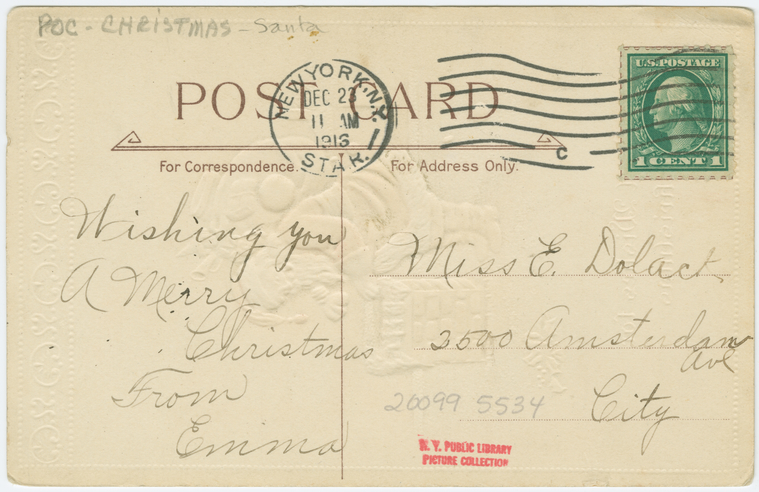 POC - CHRISTMAS - Santa
POST CARD
NEW YORK, N.Y.
DEC 23
11 AM
1913
STA. R.
C
U.S. POSTAGE
1 CENT 1
For Correspondence.
For Address Only.
Wishing you
A Merry
Christmas
From
Emma
Miss E. Dolact
3500 Amsterdam
Ave
City
20099 5534
N. Y. PUBLIC LIBRARY
PICTURE COLLECTION